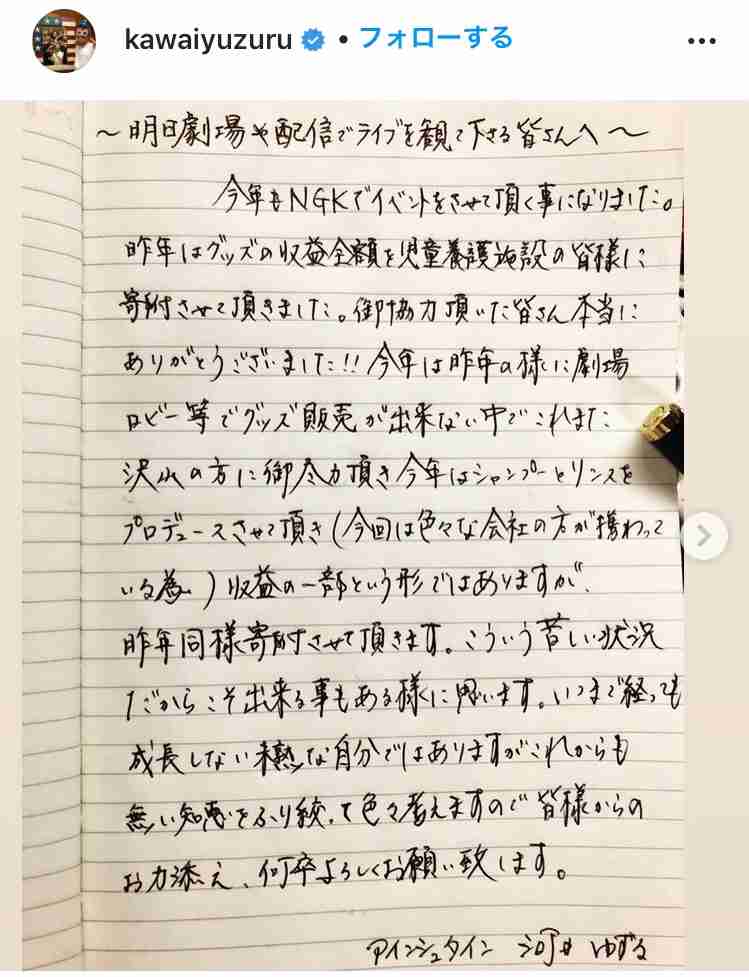 kawaiyuzuru • フォローする
~明日劇場や配信でライブを観て下さる皆さんへ~
今年もNGKでイベントをさせて頂く事になりました。
昨年はグッズの収益全額を児童養護施設の皆様に
寄附させて頂きました。御協力頂いた皆さん本当に
ありがとうございました!!今年は昨年の様に劇場
ロビー等でグッズ販売が出来ない中でこれまた
沢山の方に御尽力頂き今年はシャンプーとリンスを
プロデュースさせて頂き(今回は色々な会社の方が携わって
いる為)収益の一部という形ではありますが、
昨年同様寄附させて頂きます。こういう苦しい状況
だからこそ出来る事もある様に思います。いつまで経っても
成長しない未熟な自分ではありますがこれからも
無い知恵をふり絞って色々考えますので皆様からの
お力添え、何卒よろしくお願い致します。
アインシュタイン 河井ゆずる